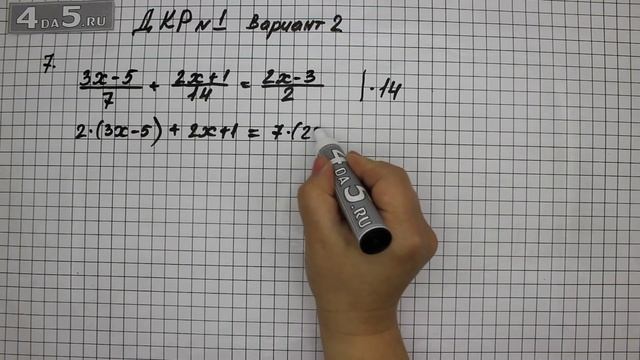 4DA5.RU
ДКР №1 Вариант 2
7.
(3x-5)/7 + (2x+1)/14 = (2x-3)/2 | · 14
2·(3x-5) + 2x+1 = 7·(2
4DA5.RU